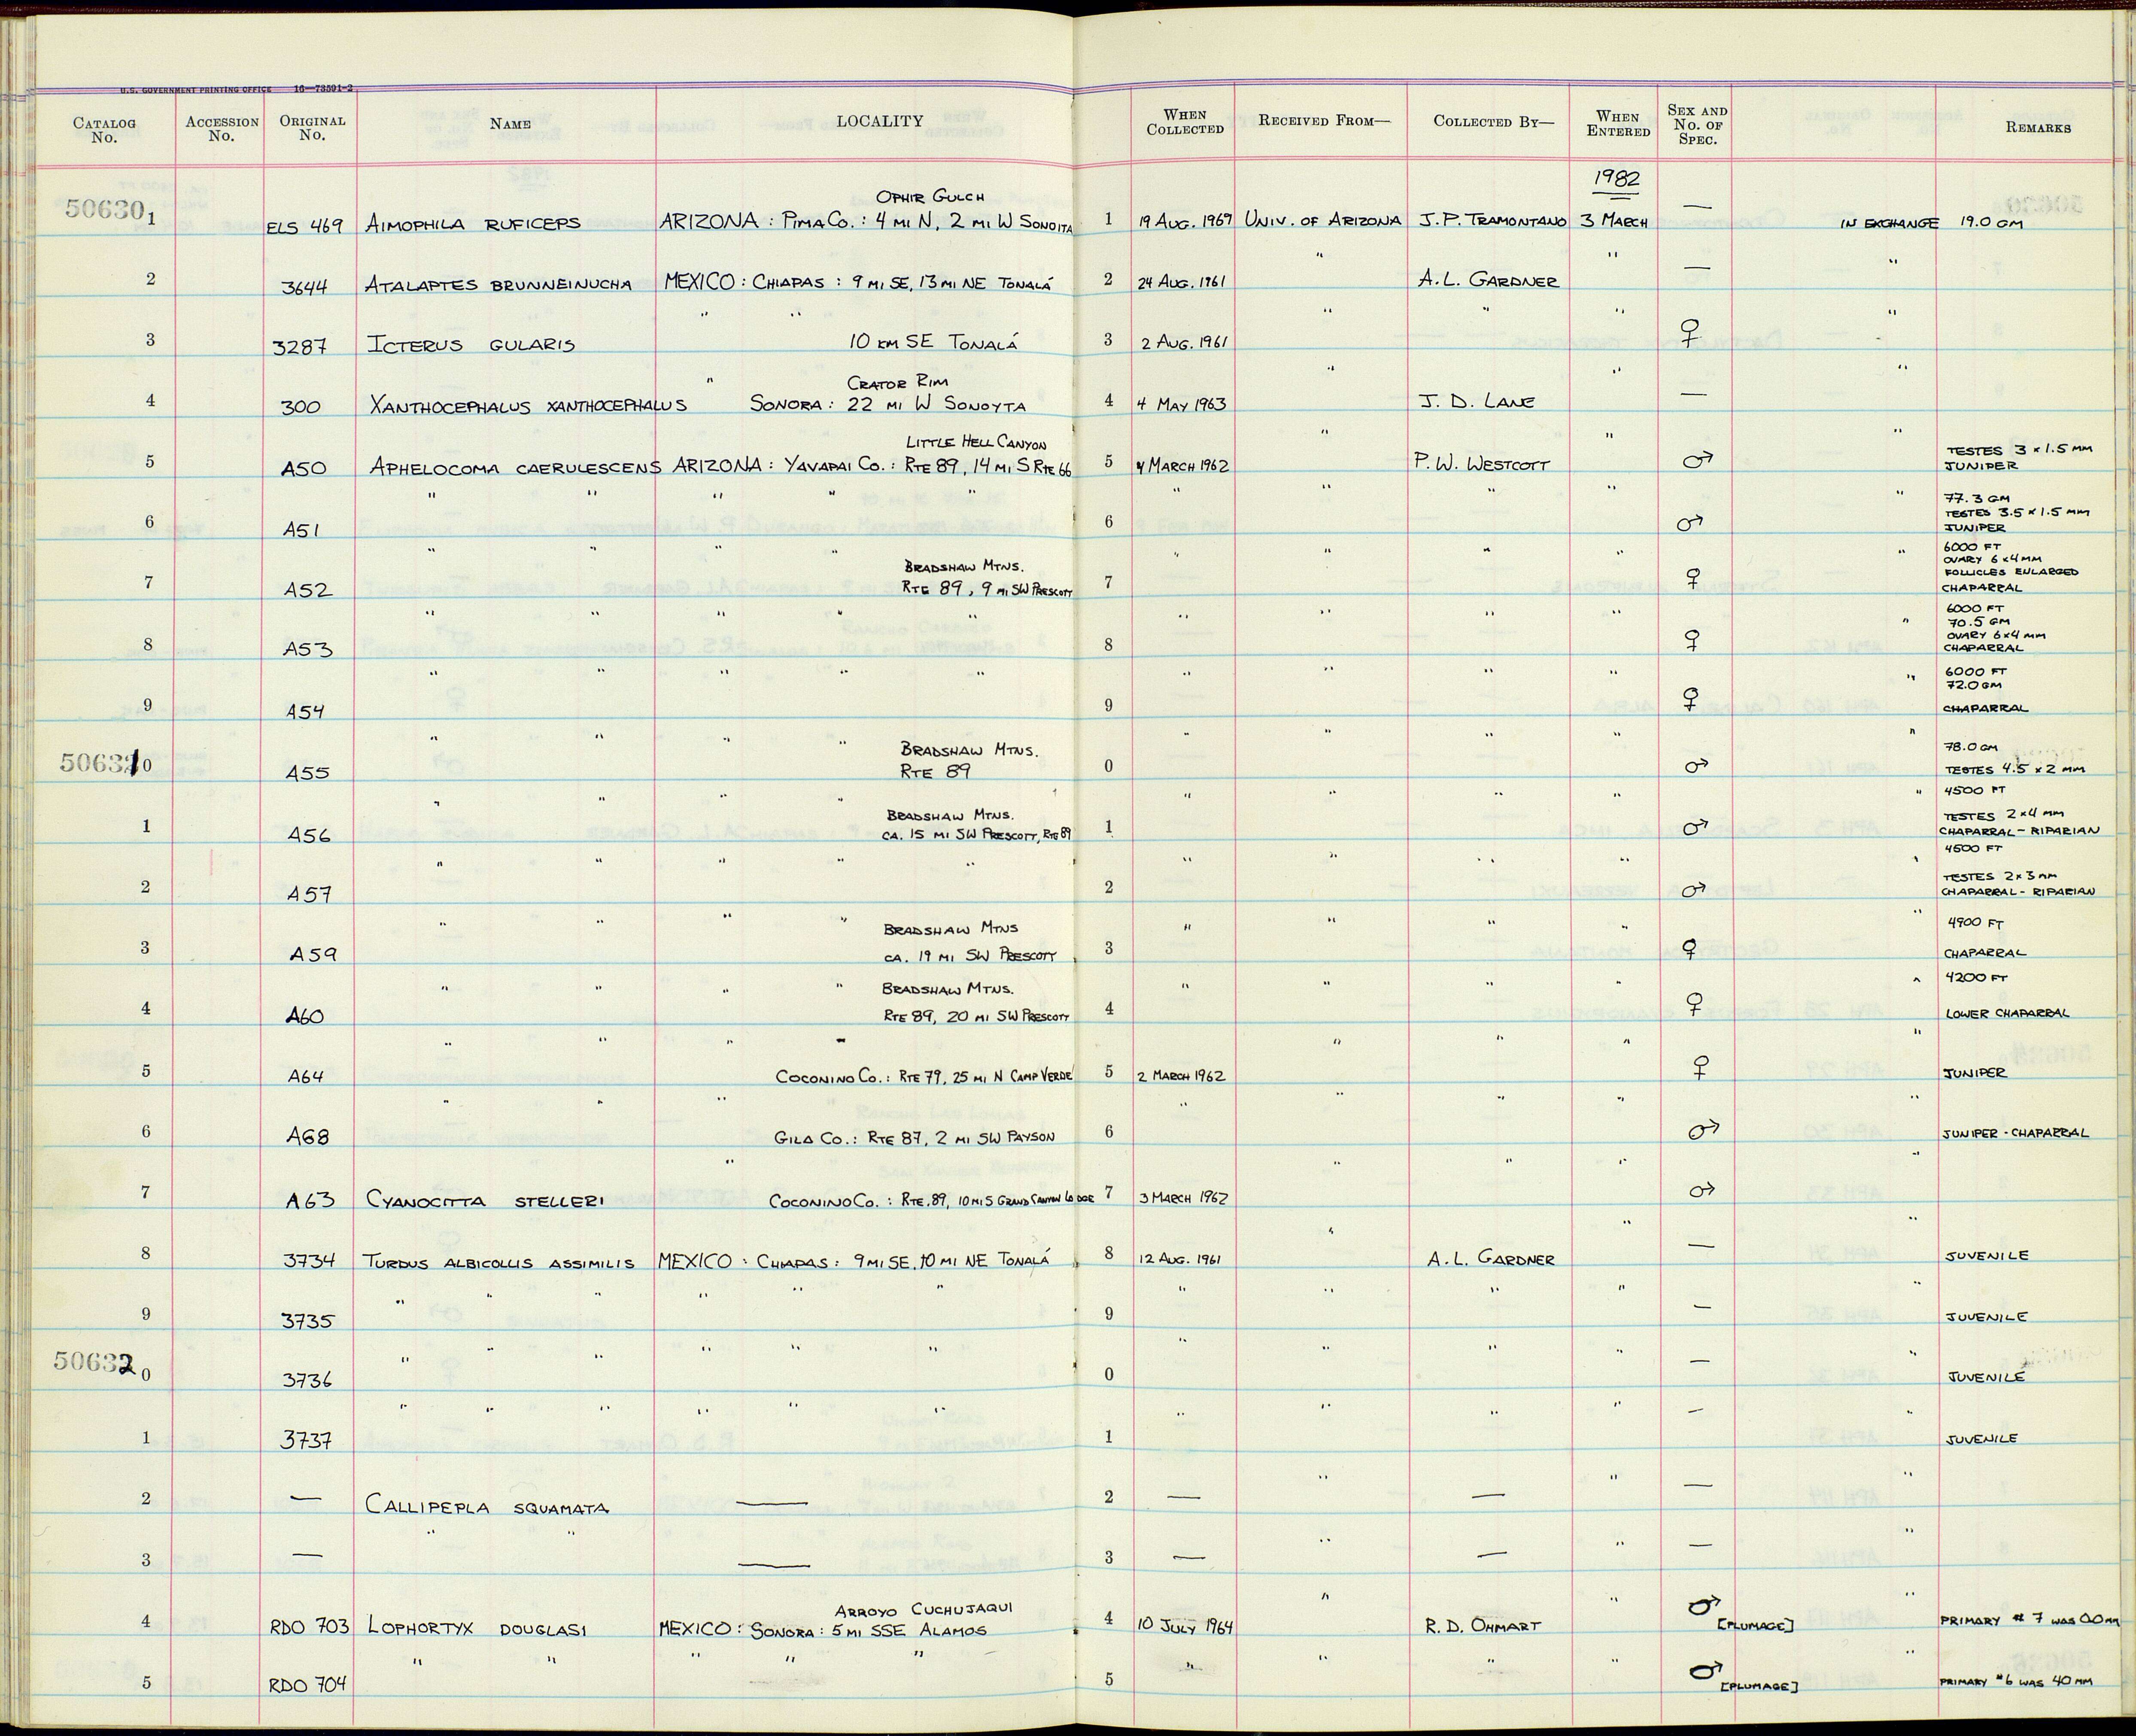 U.S. GOVERNMENT PRINTING OFFICE 16—73591-2
CATALOG No. ACCESSION No. ORIGINAL No. NAME LOCALITY WHEN COLLECTED RECEIVED FROM— COLLECTED BY— WHEN ENTERED SEX AND No. OF SPEC. REMARKS
1982
OPHIR GULCH
50630 1 ELS 469 AIMOPHILA RUFICEPS ARIZONA : PIMA CO. : 4 MI N, 2 MI W SONOITA 1 19 AUG. 1967 UNIV. OF ARIZONA J.P. TRAMONTANO 3 MARCH — IN EXCHANGE 19.0 GM
2 3644 ATALAPTES BRUNNEINUCHA MEXICO : CHIAPAS : 9 MI SE, 13 MI NE TONALÁ 2 24 AUG. 1961 " A.L. GARDNER " — "
3 3287 ICTERUS GULARIS " " 10 KM SE TONALÁ 3 2 AUG. 1961 " " " ♀ "
CRATOR RIM
4 300 XANTHOCEPHALUS XANTHOCEPHALUS " SONORA : 22 MI W SONOYTA 4 4 MAY 1963 " J. D. LANE " — "
LITTLE HELL CANYON
5 A50 APHELOCOMA CAERULESCENS ARIZONA : YAVAPAI CO. : RTE 89, 14 MI S RTE 66 5 4 MARCH 1962 " P.W. WESTCOTT " ♂ " TESTES 3 x 1.5 MM
JUNIPER
6 A51 " " " " " 6 " " " " ♂ " 77.3 GM
TESTES 3.5 x 1.5 MM
JUNIPER
BRADSHAW MTNS.
7 A52 " " " " RTE 89, 9 MI SW PRESCOTT 7 " " " " ♀ " 6000 FT
OVARY 6 x 4 MM
FOLLICLES ENLARGED
CHAPARRAL
8 A53 " " " " " 8 " " " " ♀ " 6000 FT
70.5 GM
OVARY 6x4 MM
CHAPARRAL
9 A54 " " " " " 9 " " " " ♀ " 6000 FT
72.0 GM
CHAPARRAL
BRADSHAW MTNS.
50631 0 A55 " " " " RTE 89 0 " " " " ♂ " 78.0 GM
TESTES 4.5 x 2 MM
BRADSHAW MTNS.
1 A56 " " " " CA. 15 MI SW PRESCOTT, RTE 89 1 " " " " ♂ " 4500 FT
TESTES 2x4 MM
CHAPARRAL - RIPARIAN
2 A57 " " " " " 2 " " " " ♂ " 4500 FT
TESTES 2x3 MM
CHAPARRAL - RIPARIAN
BRADSHAW MTNS
3 A59 " " " " CA. 19 MI SW PRESCOTT 3 " " " " ♀ " 4900 FT
CHAPARRAL
BRADSHAW MTNS.
4 A60 " " " " RTE 89, 20 MI SW PRESCOTT 4 " " " " ♀ " 4200 FT
LOWER CHAPARRAL
5 A64 " " " " COCONINO CO. : RTE 79, 25 MI N CAMP VERDE 5 2 MARCH 1962 " " " ♀ " JUNIPER
6 A68 " " " " GILA CO. : RTE 87, 2 MI SW PAYSON 6 " " " " ♂ " JUNIPER - CHAPARRAL
7 A63 CYANOCITTA STELLERI " COCONINO CO. : RTE. 89, 10 MI S GRAND CANYON LODGE 7 3 MARCH 1962 " " " ♂ "
8 3734 TURDUS ALBICOLLIS ASSIMILIS MEXICO : CHIAPAS : 9 MI SE, 10 MI NE TONALÁ 8 12 AUG. 1961 " A.L. GARDNER " — " JUVENILE
9 3735 " " " " " " 9 " " " " — " JUVENILE
50632 0 3736 " " " " " " 0 " " " " — " JUVENILE
1 3737 " " " " " " 1 " " " " — " JUVENILE
2 — CALLIPEPLA SQUAMATA — 2 — " — " — "
3 — " " — 3 — " — " — "
ARROYO CUCHUJAQUI
4 RDO 703 LOPHORTYX DOUGLASI MEXICO : SONORA : 5 MI SSE ALAMOS 4 10 JULY 1964 " R.D. OHMART " ♂ [PLUMAGE] " PRIMARY # 7 WAS 00 MM
5 RDO 704 " " " " " 5 " " " " ♂ [PLUMAGE] " PRIMARY #6 WAS 40 MM